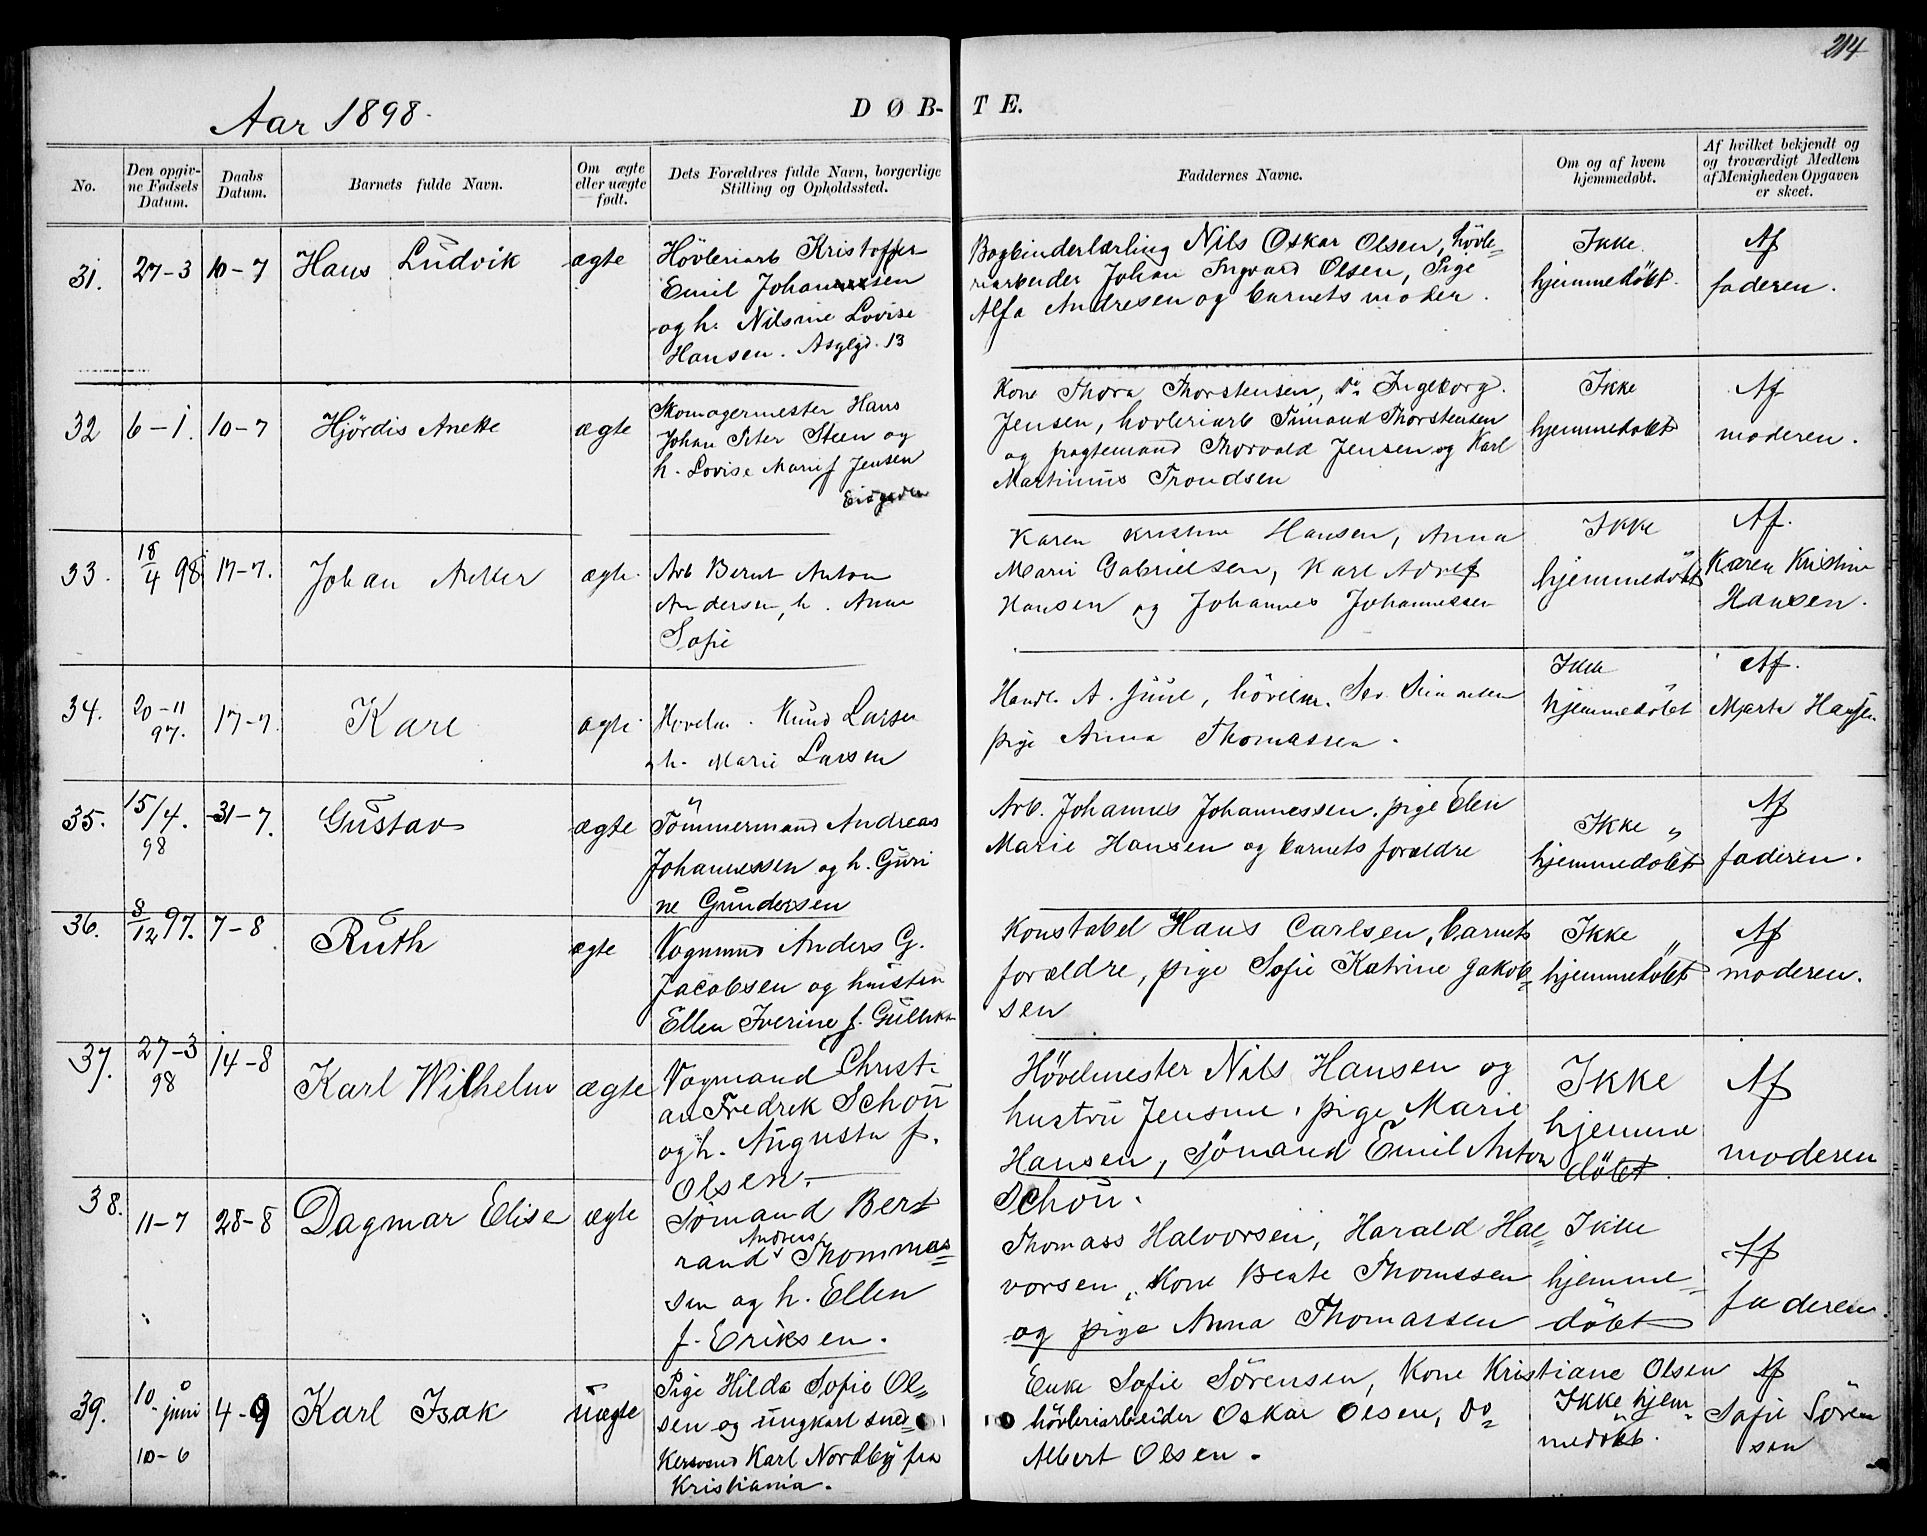 214
Aar 1898.
DØB-TE.
No.
Den opgiv-
ne Fødsels
Datum.
Daabs
Datum.
Barnets fulde Navn.
Om ægte
eller uægte
født.
Dets Forældres fulde Navn, borgerlige
Stilling og Opholdssted.
Faddernes Navne.
Om og af hvem
hjemmedøbt.
Af hvilket bekjendt og
og troværdigt Medlem
af Menigheden Opgaven
er skeet.
31.
27-3
10-7
Hans Ludvik
ægte
Hövleriarb Kristoffer
Emil Johansen
og h. Nilsine Lovise
Hansen. Asylgd. 13
Bogbinderlærling Nils Oskar Olsen, hövle-
riarbeider Johan Ingvard Olsen, Pige
Alfa Andresen og barnets moder.
Ikke
hjemmedöbt.
Af
faderen.
32
6-1.
10-7
Hjördis Anette
ægte
Skomagermester Hans
Johan Peter Steen og
h. Lovise Marie f Jensen
Kone Thora Thorstensen, do Ingeborg
Jensen, hovleriarb Thorstensen
og fragtemand Thorvald Jensen og Karl
Martinius Trondsen
Ikke
hjemmedöbt
Af
moderen.
33.
18/4 98
17-7.
Johan
ægte.
Arb Bernt Anton
Andersen, h. Anne
Sofie
Karen Kristine Hansen, Anna
Marie Gabrielsen, Karl Adolf
Hansen og Johannes Johannessen
Ikke
hjemmedöbt
Af.
Karen Kristine
Hansen.
34.
20-11
97.
17-7.
Karl
ægte.
Hovelm. Knud Larsen
h. Marie Larsen
Handl. A. Juul, hövelm. Sev. Simonsen
pige Anna Thomassen.
Ikke
hjemmedöbt
Af.
Marta Hansen
35.
15/4.
98
31-7.
Gustav
ægte
Tömmermand Andreas
Johannessen og h. Guri
ne Gundersen
Arb. Johannes Johannessen, pige Elen
Marie Hansen og barnets forældre
Ikke
hjemmedöbt
Af
faderen.
36.
8/12 97.
7-8
Ruth
ægte
Vognmand Anders G.
Jacobsen og hustru
Ellen Iverine f. Gulliksen
Konstabel Hans Carlsen, barnets
forældre, pige Sofie Katrine Jakob=
sen
Ikke
hjemmedöbt
Af
moderen.
37.
27-3
98
14-8
Karl Wilhelm
ægte
Vogmand Christi-
an Fredrik Schou
og h. Augusta f.
Olsen.
Hövelmester Nils Hansen og
hustru Jensine, pige Marie
Hansen, Sömand Emil Anton
Schou.
Ikke
hjemme
döbt.
Af
moderen
38.
11-7
28-8
Dagmar Elise
ægte
Sömand Bert
Andreas
rand Thommas=
sen og h. Ellen
f. Eriksen.
Thomass Halvorsen, Harald Hal=
vorsen, Kone Beate Thomssen
og pige Anna Thomassen
Ikke
hjemme=
döbt
Af
faderen.
39.
10 juni
10-6
4-9
Karl Isak
uægte
Pige Hilda Sofie Ol=
sen og ungkarl sned=
kersvend Karl Nordby fra
Kristiania.
Enke Sofie Sörensen, Kone Kristiane Olsen
hövleriarbeider Oskar Olsen, Do
Albert Olsen.
Ikke hjem=
medöbt.
Af
Sofie Sören
sen